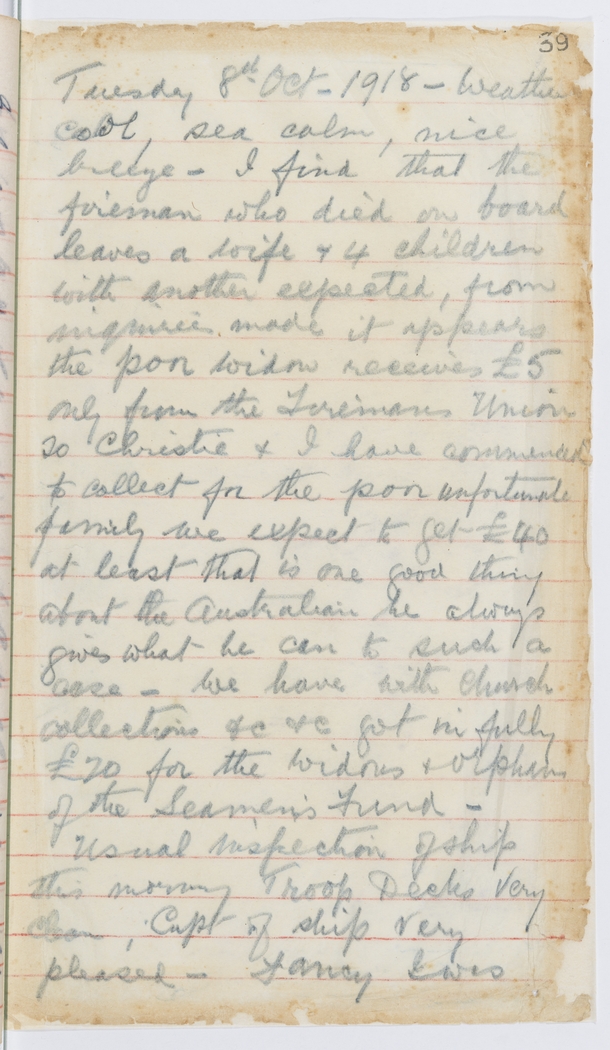 39
Tuesday 8th Oct - 1918 - Weather
cool, sea calm, nice
breeze - I find that the
fireman who died on board
leaves a wife & 4 children
with another expected, from
inquiries made it appears
the poor widow receives £5
only from the Firemans Union
so Christie & I have commenced
to collect for the poor unfortunate
family we expect to get £40
at least that is one good thing
about the Australian he always
gives what he can to such a
case - We have with Church
collections &c &c got in fully
£70 for the Widows & Orphans
of the Seamen's Fund -
Usual inspection of ship
this morning Troop Decks Very
clean, Capt of ship Very
pleased - Fancy